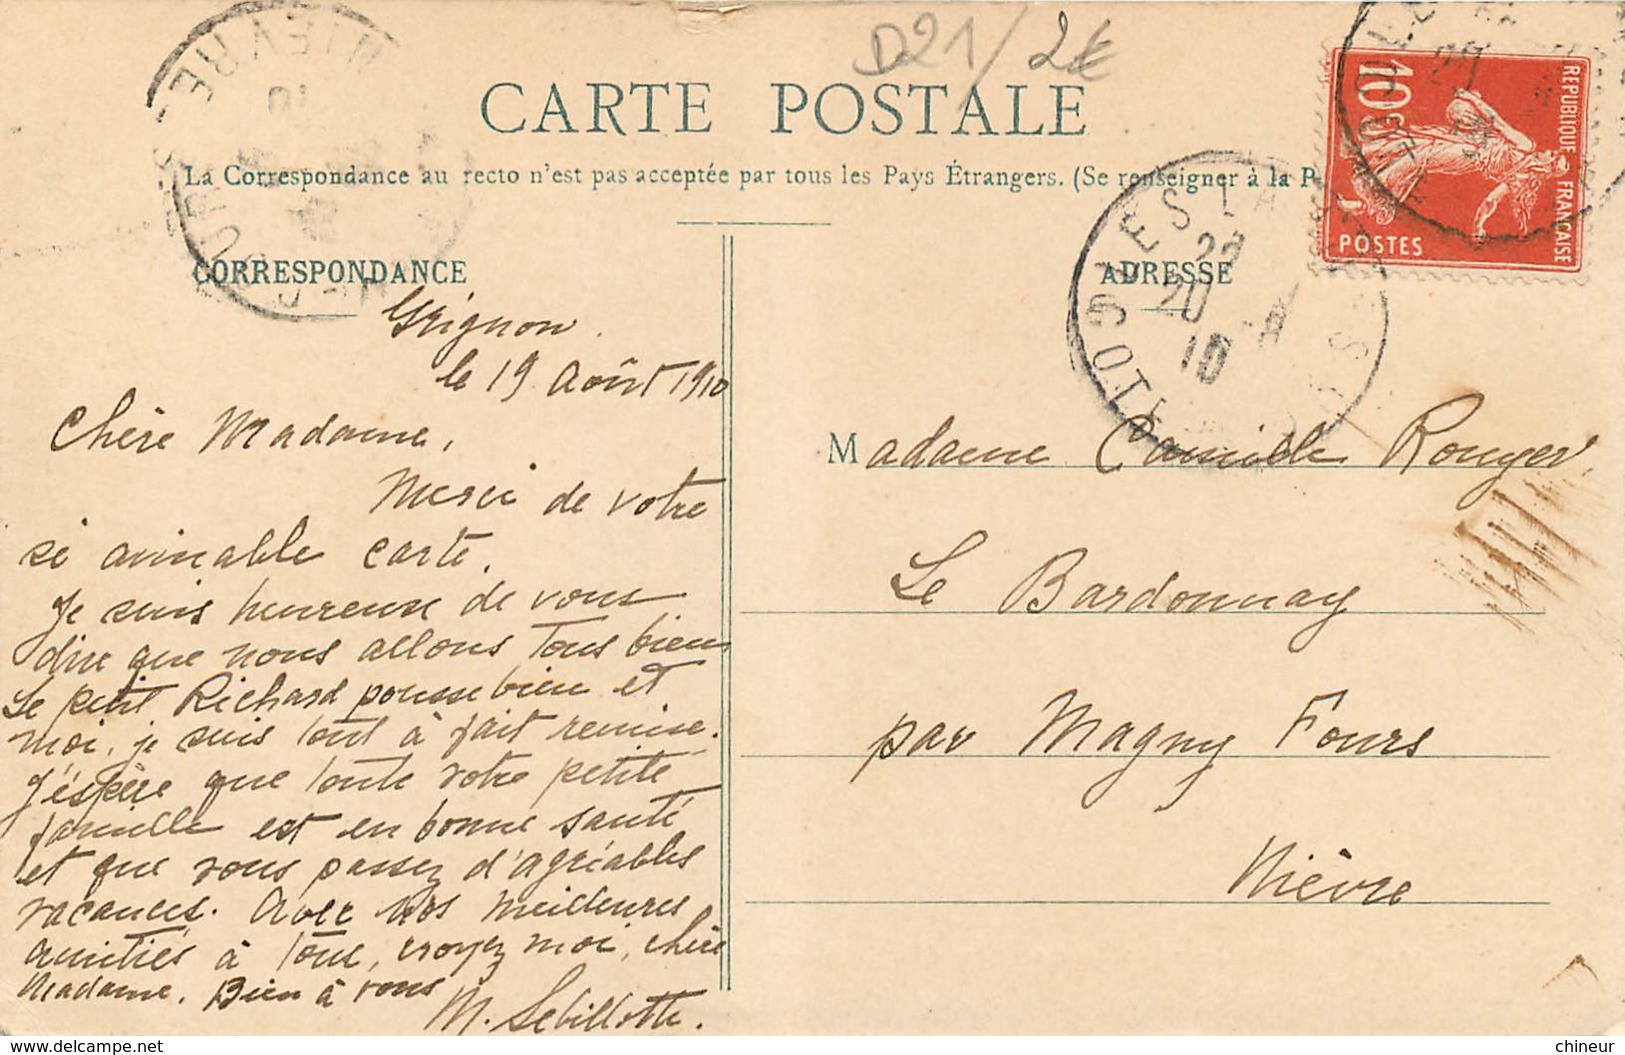 D21/2€
CARTE POSTALE
La Correspondance au recto n'est pas acceptée par tous les Pays Étrangers. (Se renseigner à la P
REPUBLIQUE FRANÇAISE
10c
POSTES
NIEVRE
10
20
10
CORRESPONDANCE
Grignon.
le 19 Août 1910
Chère Madame,
Merci de votre
si aimable carte.
Je suis heureuse de vous
dire que nous allons tous bien
Le petit Richard pousse bien et
moi, je suis tout à fait remise.
J'éspère que toute votre petite
famille est en bonne santé
et que vous passez d'agréables
vacances. Avec nos meilleures
amitiés à tous, croyez moi, chère
Madame, Bien à vous
M. Sebillotte.
ADRESSE
Madame Camille Rouyer,
Le Bardonnay
par Magny Fours
Nièvre
© delcampe.net
chineur